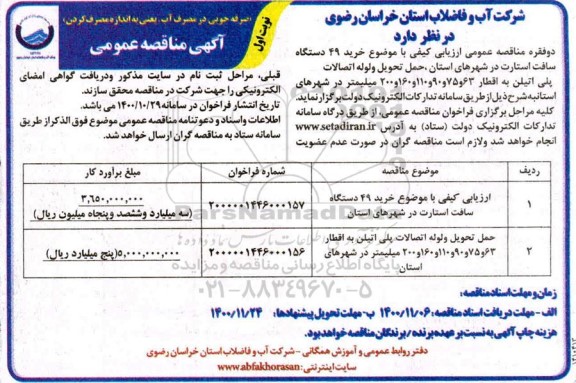 شرکت آب و فاضلاب استان خراسان رضوی
در نظر دارد
صرفه جویی در مصرف آب یعنی به اندازه مصرف کردن
آگهی مناقصه عمومی
نوبت اول
دوفقره مناقصه عمومی ارزیابی کیفی با موضوع خرید ۴۹ دستگاه
سافت استارت در شهرهای استان ،حمل تحویل ولوله اتصالات
پلی اتیلن به اقطار ۶۳و۷۵و۹۰و۱۱۰و۱۶۰و۲۰۰ میلیمتر در شهرهای
استانبه شرح ذیل از طریق سامانه تدارکات الکترونیک دولت برگزار نماید.
کلیه مراحل برگزاری فراخوان مناقصه عمومی، از طریق درگاه سامانه
تدارکات الکترونیک دولت (ستاد) به آدرس www.setadiran.ir
انجام خواهد شد ولازم است مناقصه گران در صورت عدم عضویت
قبلی، مراحل ثبت نام در سایت مذکور ودریافت گواهی امضای
الکترونیکی را جهت شرکت در مناقصه محقق سازند.
تاریخ انتشار فراخوان در سامانه ۱۴۰۰/۱۰/۲۹ می باشد.
اطلاعات واسناد و دعوتنامه مناقصه عمومی موضوع فوق الذکر از طریق
سامانه ستاد به مناقصه گران ارسال خواهد شد.
ردیف موضوع مناقصه شماره فراخوان مبلغ برآورد کار
۱ ارزیابی کیفی با موضوع خرید ۴۹ دستگاه سافت استارت در شهرهای استان ۲۰۰۰۰۰۱۴۴۶۰۰۰۱۵۷ ۳,۶۵۰,۰۰۰,۰۰۰ (سه میلیارد وششصد وپنجاه میلیون ریال)
۲ حمل تحویل ولوله اتصالات پلی اتیلن به اقطار ۶۳و۷۵و۹۰و۱۱۰و۱۶۰و۲۰۰ میلیمتر در شهرهای استان ۲۰۰۰۰۰۱۴۴۶۰۰۰۱۵۶ ۵,۰۰۰,۰۰۰,۰۰۰(پنج میلیارد ریال)
ParsNamadData
پایگاه اطلاع رسانی مناقصه و مزایده
۰۲۱-۸۸۳۴۹۶۷۰-۵
زمان و مهلت اسناد مناقصه:
الف - مهلت دریافت اسناد مناقصه: ۱۴۰۰/۱۱/۰۶ ب- مهلت تحویل پیشنهادها: ۱۴۰۰/۱۱/۲۴
هزینه چاپ آگهی به نسبت بر عهده برنده / برندگان مناقصه خواهد بود.
دفتر روابط عمومی و آموزش همگانی - شرکت آب و فاضلاب استان خراسان رضوی
سایت اینترنتی: www.abfakhorasan.ir